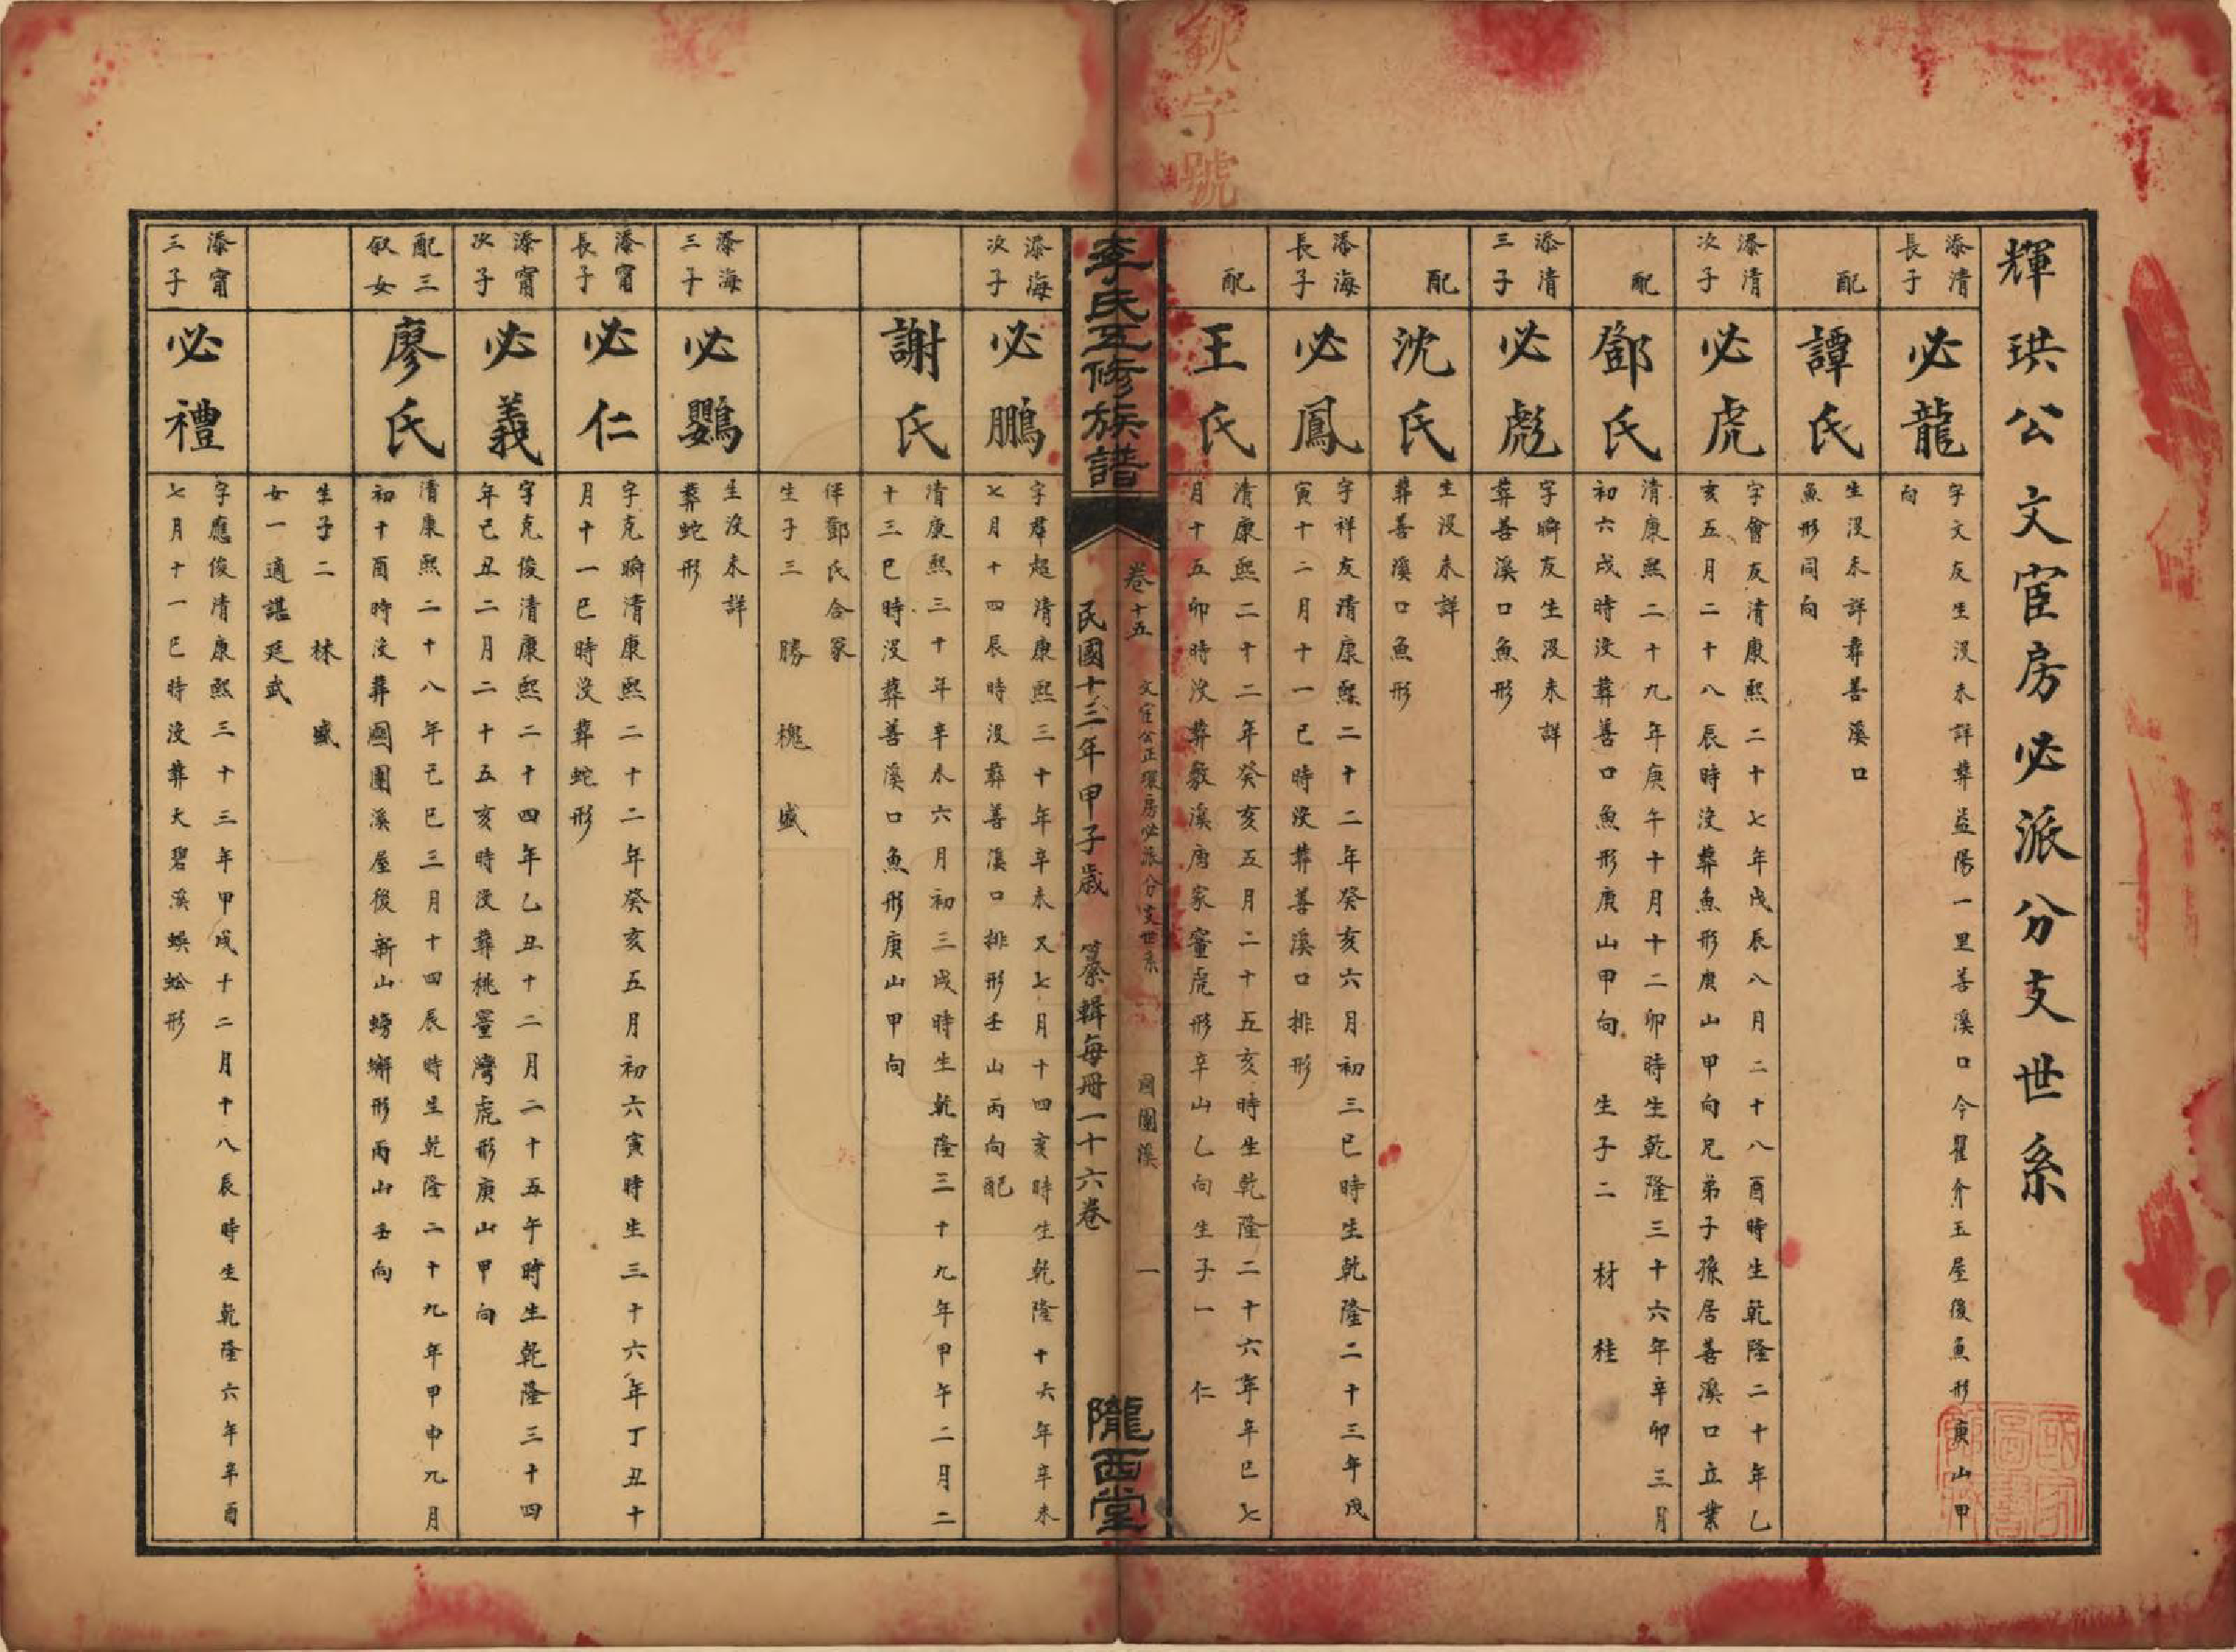 欽字號
輝珙公文宦房必派分支世系
添清長子
必龍
字文友生沒未詳葬益陽一里善溪口今瞿介玉屋後魚形庚山甲
向
配
譚氏
生沒未詳葬善溪口
魚形同向
添清次子
必虎
字會友清康熙二十七年戊辰八月二十八酉時生乾隆二十年乙
亥五月二十八辰時沒葬魚形庚山甲向兄弟子孫居善溪口立業
配
鄧氏
清康熙二十九年庚午十月十二卯時生乾隆三十六年辛卯三月
初六戌時沒葬善口魚形庚山甲向 生子二 材 桂
添清三子
必彪
字瞬友生沒未詳
葬善溪口魚形
配
沈氏
生沒未詳
葬善溪口魚形
添海長子
必鳳
字祥友清康熙二十二年癸亥六月初三巳時生乾隆二十三年戊
寅十二月十一己時沒葬善溪口排形
配
王氏
清康熙二十二年癸亥五月二十五亥時生乾隆二十六年辛巳七
月十五卯時沒葬敷溪唐家竈虎形辛山乙向生子一 仁
李氏五修族譜
卷十五 文宦公正環房必派分支世系 團溪 一
民國十三年甲子歲 纂輯每冊一十六卷
隴西堂
添海次子
必鵬
字羣超清康熙三十年辛未又七月十四亥時生乾隆十六年辛未
七月十四辰時沒葬善溪口排形壬山丙向配
謝氏
清康熙三十年辛未六月初三戌時生乾隆三十九年甲午二月二
十三巳時沒葬善溪口魚形庚山甲向
佯鄧氏合冢
生子三 勝 槐 盛
添海三子
必鸚
生沒未詳
葬蛇形
添甯長子
必仁
字克瞬清康熙二十二年癸亥五月初六寅時生三十六年丁丑十
月十一巳時沒葬蛇形
添甯次子
必義
字克俊清康熙二十四年乙丑十二月二十五午時生乾隆三十四
年己丑二月二十五亥時沒葬桃臺灣虎形庚山甲向
配三叙女
廖氏
清康熙二十八年己巳三月十四辰時生乾隆二十九年甲申九月
初十酉時沒葬團溪屋後新山螃蠏形丙山壬向
生子二 林 盛
女一適諶廷武
添甯三子
必禮
字應俊清康熙三十三年甲戌十二月十八辰時生乾隆六年辛酉
七月十一巳時沒葬大碧溪蜈蚣形